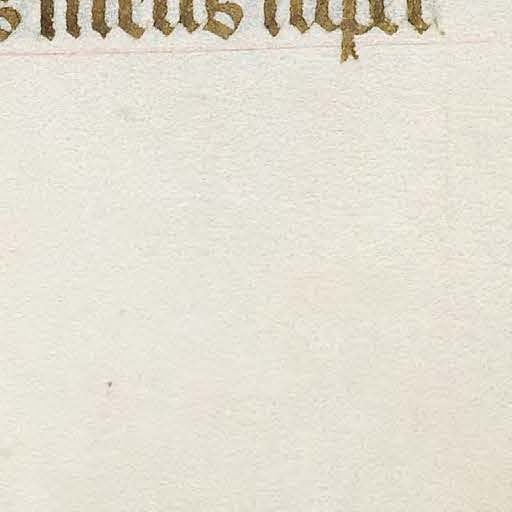 s meus super